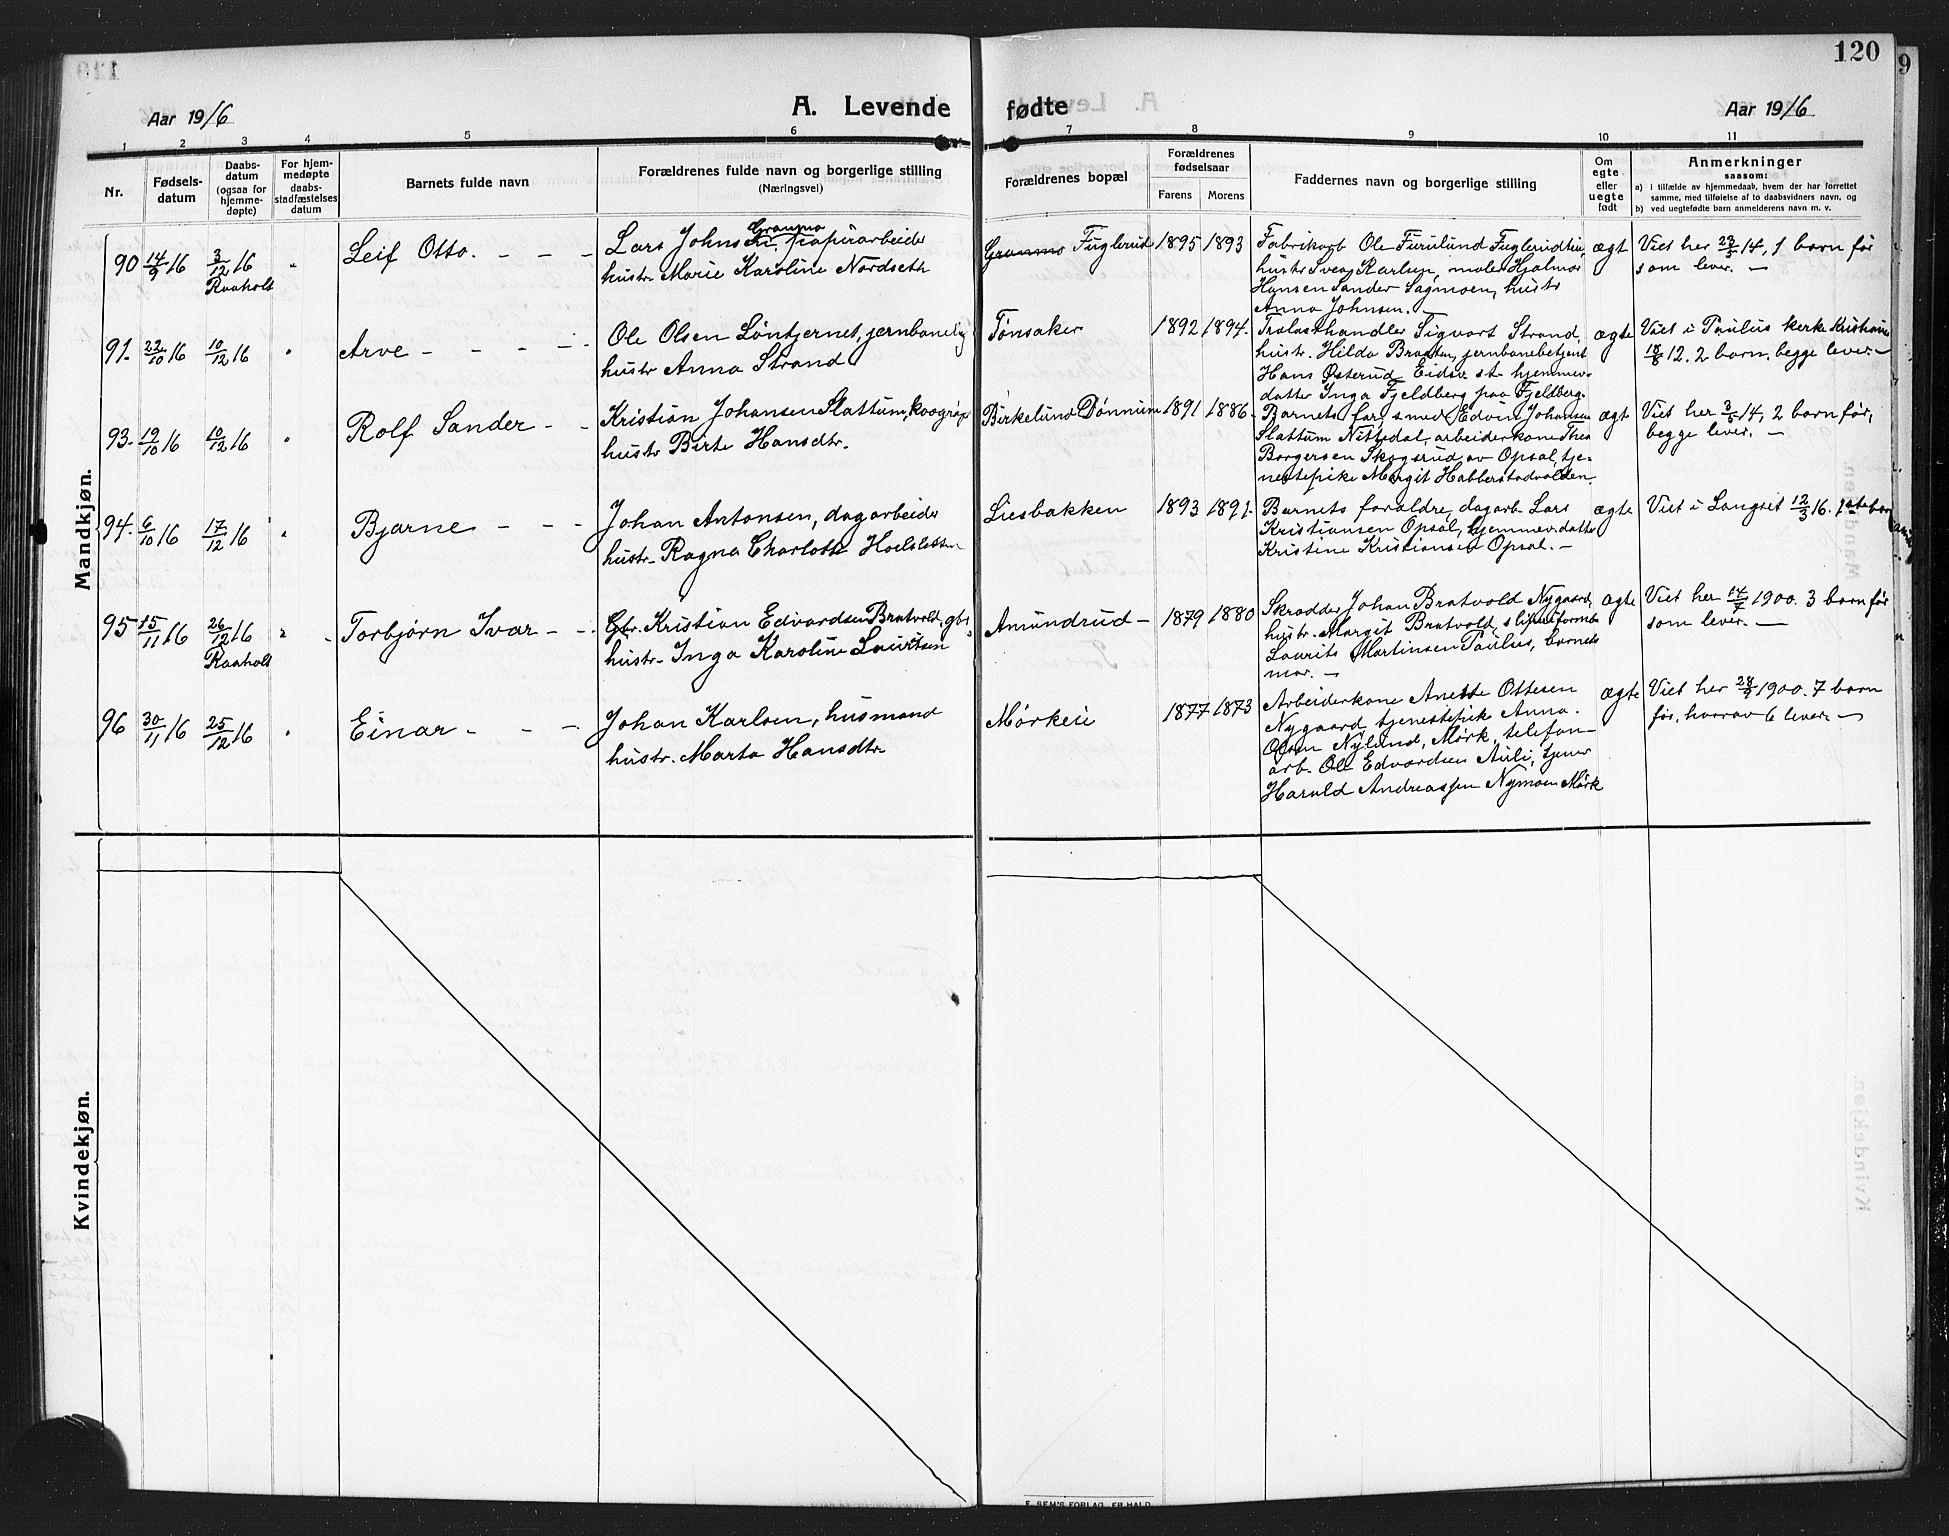 120
Aar 1916
A. Levende fødte
Aar 1916
1 2 3 4 5 6 7 8 9 10 11
Nr.
Fødsels-
datum
Daabs-
datum
(ogsaa for
hjemme-
døpte)
For hjem-
medøpte
daabs-
stadfæstelses
datum
Barnets fulde navn
Forældrenes fulde navn og borgerlige stilling
(Næringsvei)
Forældrenes bopæl
Forældrenes
fødselsaar
Farens Morens
Faddernes navn og borgerlige stilling
Om
egte
eller
uegte
født
Anmerkninger
saasom:
a) i tilfælde av hjemmedaab, hvem der har forrettet
samme, med tilføielse af to daabsvidners navn, og
b) ved uegtefødte barn anmelderens navn m. v.
Mandkjøn.
90 14/9 16 3/12 16 „
Raaholt
Leif Otto.
Granmo
Lars Johnsen, papirarbeider
hustr. Marie Karoline Nordseth
Granmo Fuglerud
1895 1893
Fabrikarb Ole Furulund Fuglerudtun,
hustr Svea Karlsen, maler Hjalmar
Hansen Sander Sagmoen, hustr
Anna Johnsen.
ægt
Viet her 23/5 14, 1 barn før
som lever. —
91. 22/10 16 10/12 16 „
Arve
Ole Olsen Løntjernet, jernbanelig
hustr Anna Strand
Tønsaker
1892 1894.
Trælasthandler Sigvart Strand,
hustr. Hilda Braaten, jernbanebetjent
Hans Østerud Eidsv. st. hjemmev.
datter Inga Fjeldberg paa Fjeldberg.
ægte
Viet i Paulus kerke Kristiania
18/8 12. 2 barn, begge lever. —
93. 19/10 16 10/12 16 „
Rolf Sander
Kristian Johansen Slattum,
hustr Birte Hansdtr.
Birkelund Dønnum
1891 1886.
Barnets far, smed Edvin Johansen
Slattum Nittedal, arbeiderkone Thea
Borgersen Skogsrud av Opsal, tje-
nestepike Margit Habberstadvolden.
ægt
Viet her 3/5 14, 2 barn før,
begge lever. —
94. 6/10 16 17/12 16 „
Bjarne
Johan Antonsen, dagarbeider
hustr. Ragna Charlotte
Liesbakken
1893 1891.
Barnets foraldre, dagarb. Lars
Kristiansen Opsal, hjemmev. datter
Kristine Kristiansen Opsal. —
ægte
Viet i Langset 12/3 16. 1ste barn
95 15/11 16 26/12 16 „
Raaholt
Torbjørn Ivar
Gbr. Kristian Edvardsen Bratvold, gbr
hustr. Inga Karoline Lauritsen
Amundrud
1879 1880
Skrædder Johan Bratvold Nygaard,
hustr. Margit Bratvold, sliperiformand
Laurits Martinsen Paulus, barnets
mor. —
ægte
Viet her 14/7 1900. 3 barn før
som lever. —
96 30/11 16 25/12 16 „
Einar
Johan Karlsen, husmand
hustr. Marta Hansdtr
Mørkeie
1877 1873
Arbeiderkone Anette Ottesen
Nygaard, tjenestepike Anna
Olsen Nylund, Mørk, telefon-
arb. Ole Edvardsen Auli, tjener
Harald Andreassen Nymoen Mørk
ægte
Viet her 28/9 1900. 7 barn
før, hvorav 6 lever. —
Kvindekjøn.
E. SEM'S FORLAG, FR.HALD